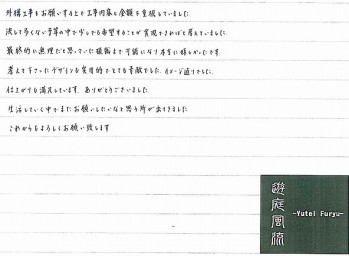 外構工事をお願いする上で工事内容と金額を重視していました。
決して多くない予算の中で少しでも希望することが実現できればと考えていました。
最終的に無理だと思っていた植栽まで可能になり本当に嬉しかったです。
考えて下さったデザインも実用的でとても素敵でした。イメージ通りでした。
仕上がりも満足しています。ありがとうございました。
生活していく中でまたお願いしたいなと思う所が出てきました。
これからもよろしくお願い致します
遊庭風流
-Yutei Furyu-